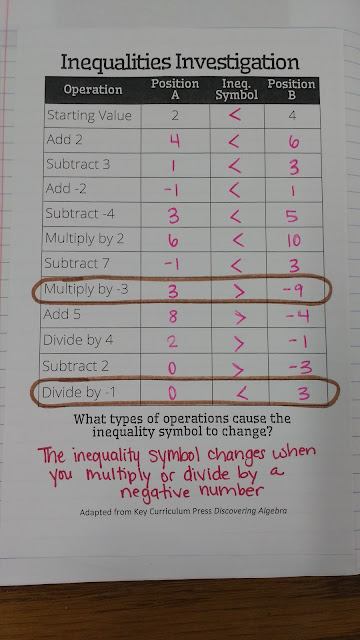 Inequalities Investigation
Operation Position A Ineq. Symbol Position B
Starting Value 2 < 4
Add 2 4 < 6
Subtract 3 1 < 3
Add -2 -1 < 1
Subtract -4 3 < 5
Multiply by 2 6 < 10
Subtract 7 -1 < 3
Multiply by -3 3 > -9
Add 5 8 > -4
Divide by 4 2 > -1
Subtract 2 0 > -3
Divide by -1 0 < 3
What types of operations cause the
inequality symbol to change?
The inequality symbol changes when
you multiply or divide by a
negative number
Adapted from Key Curriculum Press Discovering Algebra